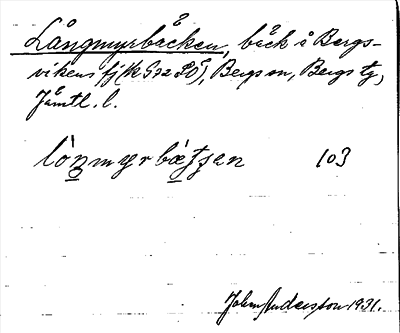 Långmyrbäcken, bäck i Bergs-
vikens fj (k 572 SO), Bergs sn, Bergs tg,
Jämtl. l.
lòŋmyrbæ̀tʃen 103
John Andersson 1931.